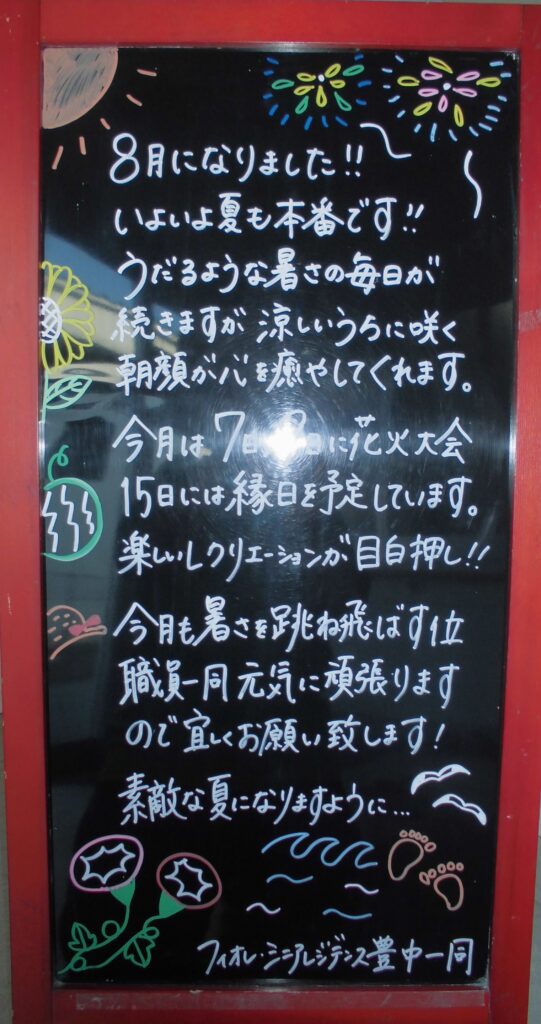 8月になりました!!
いよいよ夏も本番です!!
うだるような暑さの毎日が
続きますが 涼しいうちに咲く
朝顔が心を癒やしてくれます。
今月は 7日 に花火大会
15日には縁日を予定しています。
楽しいレクリエーションが目白押し!!
今月も暑さを跳ね飛ばす位
職員一同元気に頑張ります
ので宜しくお願い致します!
素敵な夏になりますように…
フィオレ・シニアレジデンス豊中一同